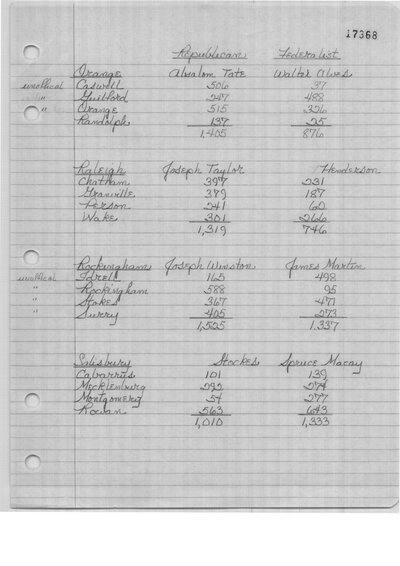 17368
Republican Federalist
Orange Absalom Tate Walter Alves
unofficial Caswell 506 37
" Guilford 247 488
" Orange 515 326
Randolph 137 25
1,405 876
Raleigh Joseph Taylor Henderson
Chatham 397 231
Granville 379 187
Person 241 62
Wake 301 266
1,319 746
Rockingham Joseph Winston James Martin
unofficial 165 498
" Rockingham 588 95
" Stokes 367 471
" Surry 405 273
1,525 1,337
Salisbury Stockes Spruce Macay
Cabarrus 101 139
Mecklenburg 292 274
Montgomery 54 277
Rowan 563 643
1,010 1,333